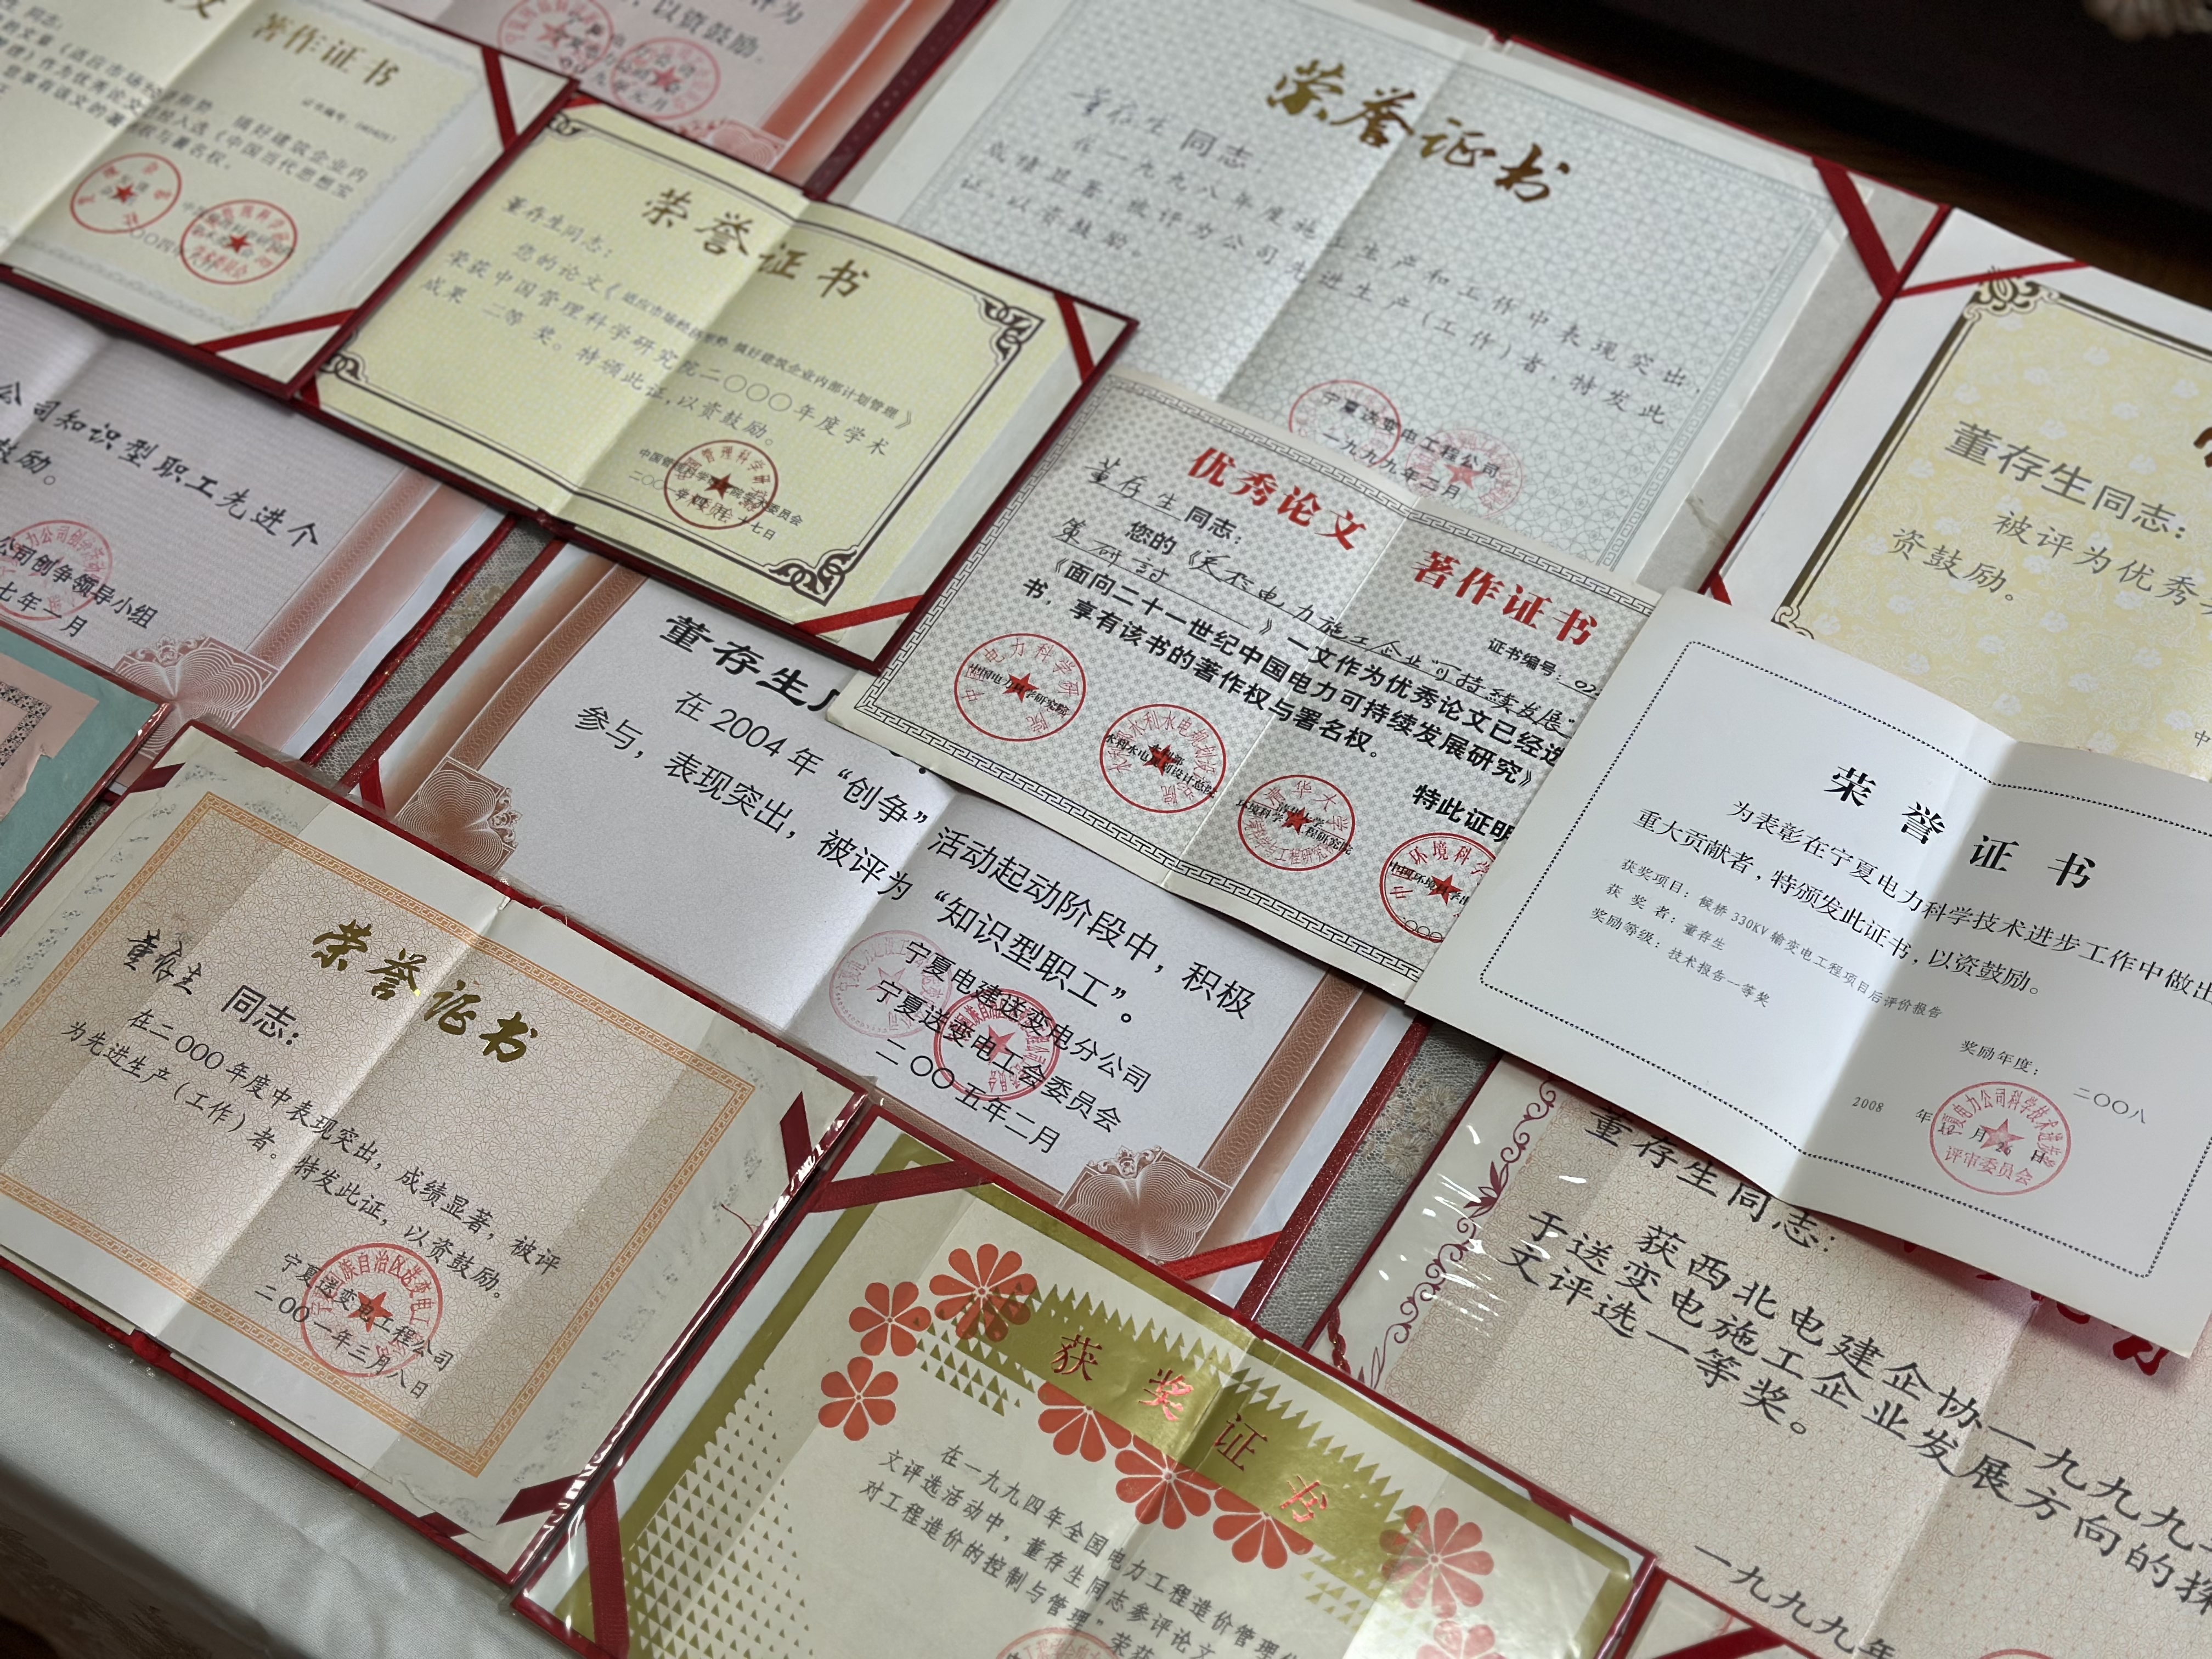 著作证书
搞好建筑企业内
入选《中国当代思想宝
权与署名权。
评为
，以资鼓励。
荣誉证书
董存生同志：
您的论文《适应市场经济形势 搞好建筑企业内部计划管理》
荣获中国管理科学研究院二〇〇〇年度学术
成果 二等 奖。特颁此证，以资鼓励。
荣誉证书
董存生 同志：
在一九九八年度施工生产和工作中表现突出，
成绩显著 被评为公司先进生产（工作）者，特发此
证，以资鼓励。
宁夏送变电工程公司
一九九九年二月
董存生同志：
被评为优秀
资鼓励。
公司知识型职工先进个
鼓励。
公司创争领导小组
七年一月
优秀论文 著作证书
证书编号：
董存生 同志：
您的《关于电力施工企业"可持续发展"
策研讨 》一文作为优秀论文已经选
《面向二十一世纪中国电力可持续发展研究》
书，享有该书的著作权与署名权。
特此证明
荣誉证书
为表彰在宁夏电力科学技术进步工作中做出
重大贡献者，特颁发此证书，以资鼓励。
获奖项目：候桥 330KV 输变电工程项目后评价报告
获 奖 者：董存生
奖励等级：技术报告一等奖
奖励年度： 二〇〇八
2008 年 12 月 26 日
评审委员会
董存生
在 2004 年“创争”活动起动阶段中，积极
参与，表现突出，被评为“知识型职工”。
宁夏电建送变电分公司
宁夏送变电工会委员会
二〇〇五年二月
荣誉证书
董存生 同志：
在二〇〇〇年度中表现突出，成绩显著，被评
为先进生产（工作）者。特发此证，以资鼓励。
宁夏送变电工程公司
二〇〇一年三月八日
获奖证书
在一九九四年全国电力工程造价管理
文评选活动中，董存生同志参评论文
对工程造价的控制与管理”荣获
董存生同志：
获西北电建企协一九九九
于送变电施工企业发展方向的探
文评选一等奖。
一九九九年